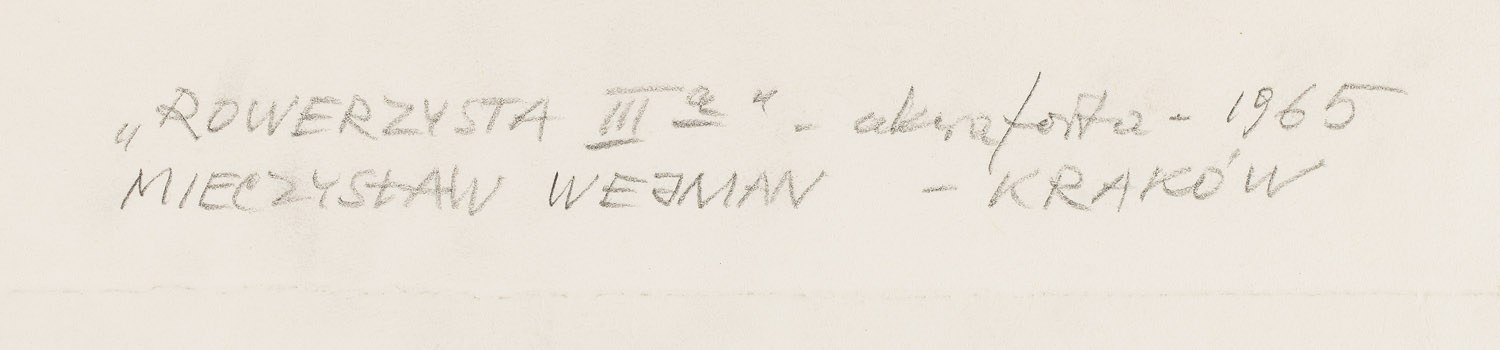 „ROWERZYSTA III a" - akwaforta - 1965
MIECZYSŁAW WEJMAN - KRAKÓW